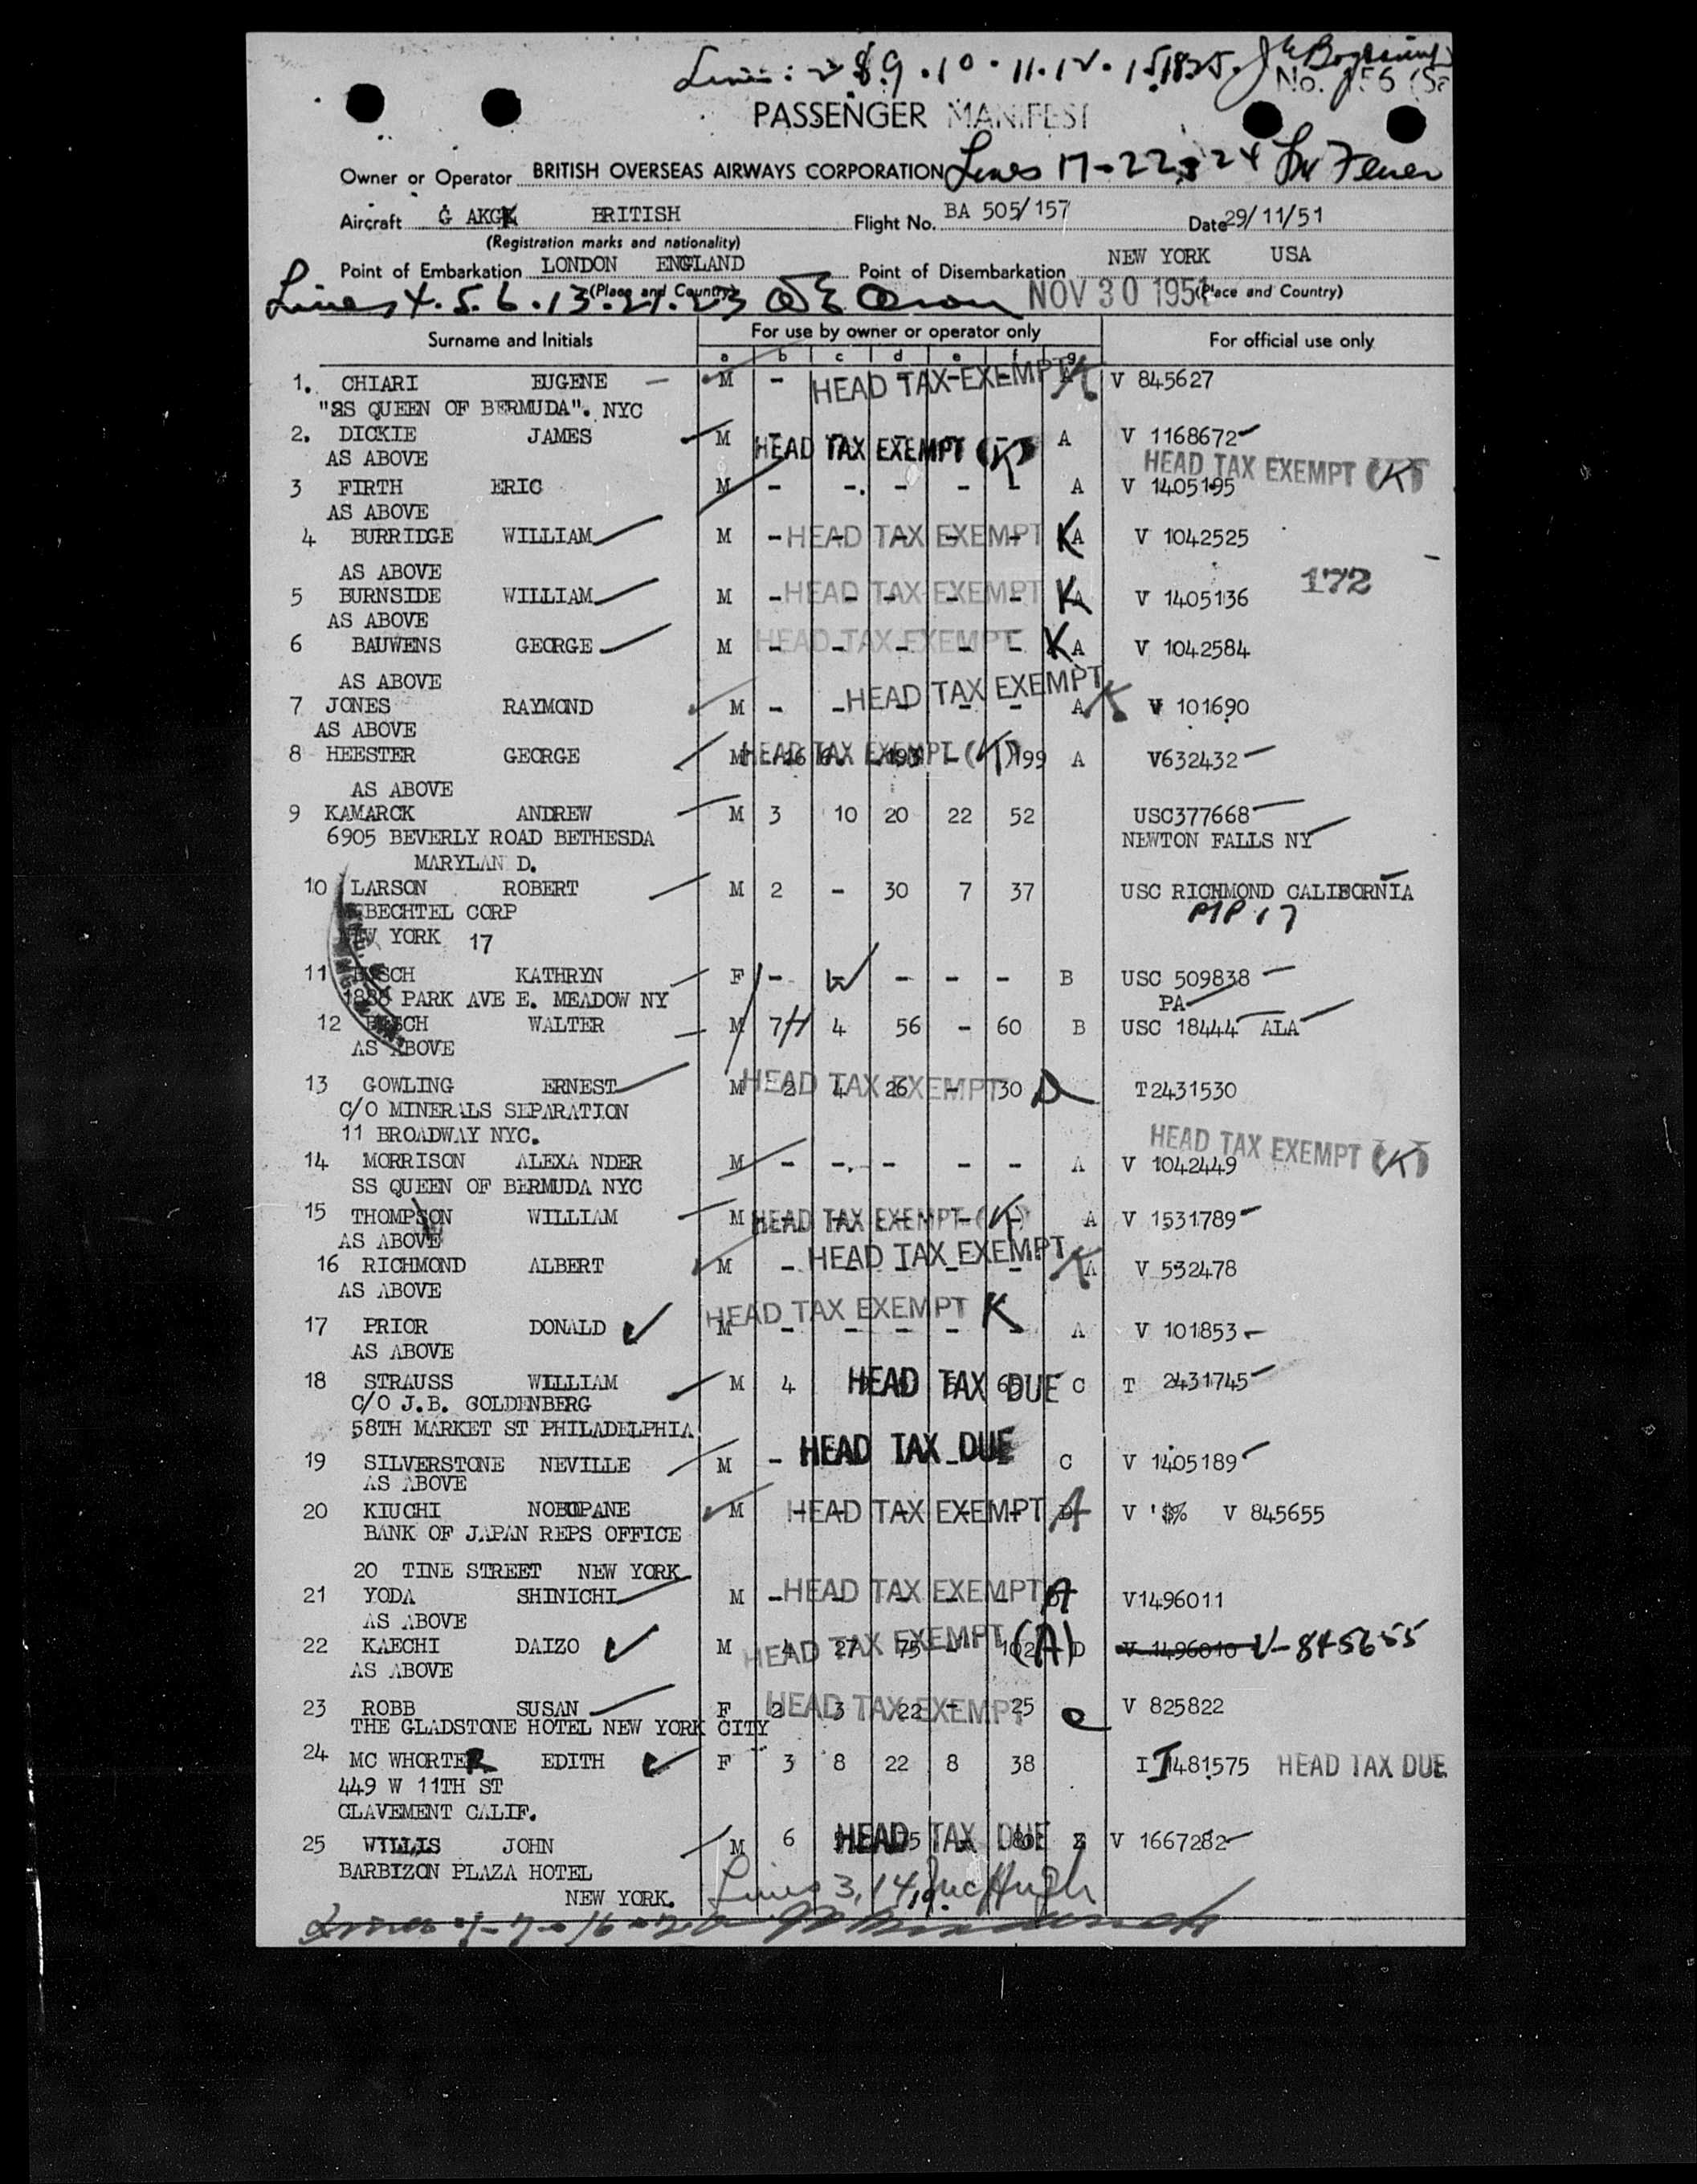 Lines: 2 8.9.10.11.12.15.18.25.
No. 156
PASSENGER MANIFEST
Owner or Operator BRITISH OVERSEAS AIRWAYS CORPORATION Lines 17-22, 24
Aircraft G AKGK BRITISH Flight No. BA 505/157 Date 29/11/51
(Registration marks and nationality)
Point of Embarkation LONDON ENGLAND Point of Disembarkation NEW YORK USA
(Place and Country) NOV 30 1951 (Place and Country)
Lines 4.5.6.13.21.23
Surname and Initials For use by owner or operator only For official use only
a b c d e f g
1. CHIARI EUGENE — M - HEAD TAX EXEMPT A K V 845627
"SS QUEEN OF BERMUDA". NYC
2. DICKIE JAMES M HEAD TAX EXEMPT (K) A V 1168672
AS ABOVE HEAD TAX EXEMPT (K)
3 FIRTH ERIC M - -. - - - A V 1405195
AS ABOVE
4 BURRIDGE WILLIAM M - HEAD TAX EXEMPT K A V 1042525
AS ABOVE 172
5 BURNSIDE WILLIAM M - HEAD TAX EXEMPT K A V 1405136
AS ABOVE
6 BAUWENS GEORGE M HEAD TAX EXEMPT K A V 1042584
AS ABOVE
7 JONES RAYMOND M - - HEAD TAX EXEMPT A K V 101690
AS ABOVE
8 HEESTER GEORGE M HEAD TAX EXEMPT (K) 199 A V632432
AS ABOVE
9 KAMARCK ANDREW M 3 10 20 22 52 USC377668
6905 BEVERLY ROAD BETHESDA NEWTON FALLS NY
MARYLAN D.
10 LARSON ROBERT M 2 - 30 7 37 USC RICHMOND CALIBORNIA
BECHTEL CORP PIP 17
NEW YORK 17
11 KATHRYN F - - - - - B USC 509838
1888 PARK AVE E. MEADOW NY PA
12 WALTER M 7 H 4 56 - 60 B USC 18444 ALA
AS ABOVE
13 GOWLING ERNEST M 2 4 26 - 30 HEAD TAX EXEMPT D T2431530
C/O MINERALS SEPARATION
11 BROADWAY NYC. HEAD TAX EXEMPT (K)
14 MORRISON ALEXA NDER M - -. - - - A V 1042449
SS QUEEN OF BERMUDA NYC
15 THOMPSON WILLIAM M HEAD TAX EXEMPT (K) A V 1531789
AS ABOVE
16 RICHMOND ALBERT M - HEAD TAX EXEMPT K A V 532478
AS ABOVE
17 PRIOR DONALD M HEAD TAX EXEMPT K A V 101853
AS ABOVE
18 STRAUSS WILLIAM M 4 HEAD TAX DUE C T 2431745
C/O J.B. GOLDENBERG
58TH MARKET ST PHILADELPHIA
19 SILVERSTONE NEVILLE M - HEAD TAX DUE C V 1405189
AS ABOVE
20 KIUCHI M HEAD TAX EXEMPT A V '$% V 845655
BANK OF JAPAN REPS OFFICE
20 TINE STREET NEW YORK
21 YODA SHINICHI M - HEAD TAX EXEMPT A V1496011
AS ABOVE
22 KAECHI DAIZO M 4 27 75 - 102 HEAD TAX EXEMPT (A) D V 1496010 V-845655
AS ABOVE
23 ROBB SUSAN F 2 3 22 - 25 HEAD TAX EXEMPT e V 825822
THE GLADSTONE HOTEL NEW YORK CITY
24 MC WHORTER EDITH F 3 8 22 8 38 I 1481575 HEAD TAX DUE
449 W 11TH ST
CLAVEMENT CALIF.
25 WILLIS JOHN M 6 HEAD TAX DUE V 1667282
BARBIZON PLAZA HOTEL
NEW YORK. Lines 3, 14,
Lines 1-7-16-20